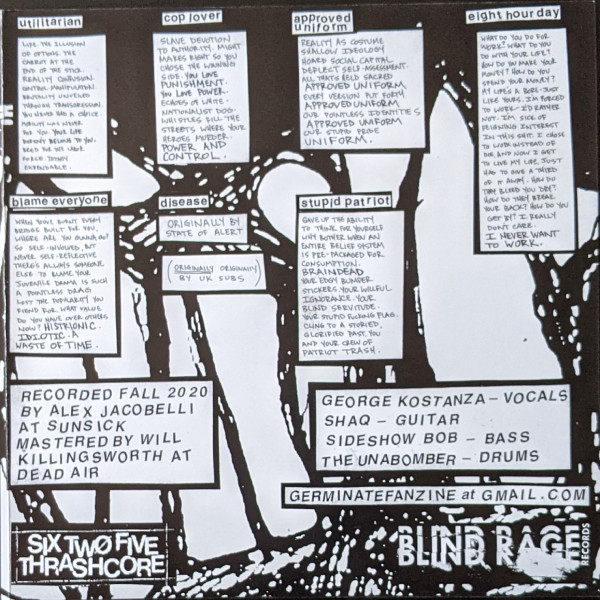 utilitarian
LIFE. THE ILLUSION
OF OPTIONS. THE
CARROT AT THE
END OF THE STICK.
REALITY. CONFUSION.
CONTROL. MANIPULATION.
BRUTALITY UNVEILED
THROUGH TRANSGRESSION.
YOU NEVER HAD A CHOICE.
WAS NEVER
FOR YOU. YOUR LIFE
DOESN'T BELONG TO YOU.
BACK TO THE WORK
FORCE. DEBT.
EXPENDABLE.
cop lover
SLAVE DEVOTION
TO AUTHORITY. MIGHT
MAKES RIGHT SO YOU
CHOSE THE WINNING
SIDE. YOU LOVE
PUNISHMENT.
YOU LOVE POWER.
ECHOES OF WHITE-
NATIONALIST DOG-
WHISTLES FILL THE
STREETS WHERE YOUR
HEROES MURDER.
POWER AND
CONTROL.
approved
uniform
REALITY AS COSTUME
SHALLOW IDEOLOGY
HOARD SOCIAL CAPITAL
DEFLECT SELF-ASSESSMENT.
ALL THAT'S HELD SACRED
APPROVED UNIFORM
EVERY VERSION PUT FORTH
APPROVED UNIFORM
OUR POINTLESS IDENTITIES
APPROVED UNIFORM
OUR STUPID PRIDE
UNIFORM.
eight hour day
WHAT DO YOU DO FOR
WORK? WHAT DO YOU
DO WITH YOUR LIFE?
HOW DO YOU MAKE YOUR
MONEY? HOW DO YOU
SPEND YOUR MONEY?
MY LIFE'S A BORE-JUST
LIKE YOURS. I'M FORCED
TO WORK-I'D RATHER
NOT. I'M SICK OF
FEIGNING INTEREST
IN THIS SHIT. I CHOSE
TO WORK INSTEAD OF
DIE AND NOW I GET
TO LIVE MY LIFE. JUST
HAD TO GIVE A THIRD
OF IT AWAY. HOW DO
THEY BLEED YOU DRY?
HOW DO THEY BREAK
YOUR BACK? HOW DO YOU
GET BY? I REALLY
DON'T CARE.
I NEVER WANT
TO WORK.
blame everyone
WHEN YOU'VE BURNT EVERY
BRIDGE BUILT FOR YOU,
WHERE ARE YOU GONNA GO?
SO SELF-INVOLVED, BUT
NEVER SELF-REFLECTIVE
THERE'S ALWAYS SOMEONE
ELSE TO BLAME. YOUR
JUVENILE DRAMA IS SUCH
A POINTLESS DRAG
LOST THE POPULARITY YOU
FIEND FOR. WHAT VALUE
DO YOU HAVE OVER OTHERS
NOW? HISTRIONIC.
IDIOTIC. A
WASTE OF TIME.
disease
ORIGINALLY BY
STATE OF ALERT
(ORIGINALLY ORIGINALLY
BY UK SUBS)
stupid patriot
GAVE UP THE ABILITY
TO THINK FOR YOURSELF
WHY BOTHER WHEN AN
ENTIRE BELIEF SYSTEM
IS PRE-PACKAGED FOR
CONSUMPTION.
BRAINDEAD
YOUR EDGY BUMPER
STICKERS. YOUR WILLFUL
IGNORANCE. YOUR
BLIND SERVITUDE.
YOUR STUPID FUCKING FLAG.
CLING TO A STORIED,
GLORIFIED PAST. YOU
AND YOUR CREW OF
PATRIOT TRASH.
RECORDED FALL 2020
BY ALEX JACOBELLI
AT SUNSICK
MASTERED BY WILL
KILLINGSWORTH AT
DEAD AIR
GEORGE KOSTANZA – VOCALS
SHAQ – GUITAR
SIDESHOW BOB – BASS
THE UNABOMBER – DRUMS
GERMINATEFANZINE at GMAIL.COM
SIX TWØ FIVE
THRASHCORE
BLIND RAGE
RECORDS